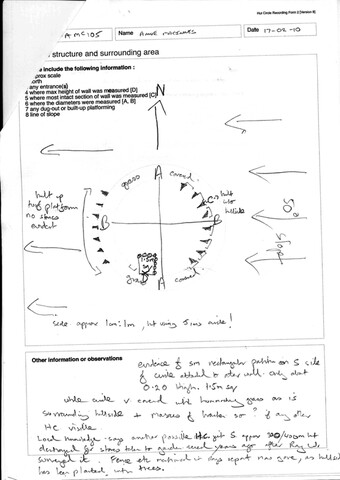 Hut Circle Recording Form 2 [Version B]
AMC105
Name Anne
Date 17-02-10
structure and surrounding area
include the following information :
approx scale
north
any entrance(s)
4 where max height of wall was measured [D]
5 where most intact section of wall was measured [C]
6 where the diameters were measured [A, B]
7 any dug-out or built-up platforming
8 line of slope
N
grass A covered
built up
turf platform
no stones
evident
B
C
built
into
hillside
B
50°
slope
1.5m
grass A covered
scale approx 1cm:1m, not using 5mm circle!
Other information or observations
evidence of sm rectangular platform on S side
of circle attached to outer wall. Only about
0.20 high. 1.5m sq
whole circle v covered with hummocky grass as is
surrounding hillside + masses of so if any other
HC visible.
Local knowledge says another possible HC just S approx
destroyed for stones taken to garden several years ago after Roy
surveyed it. Fence etc mentioned in orig report now gone, as hillside
has been planted with trees.